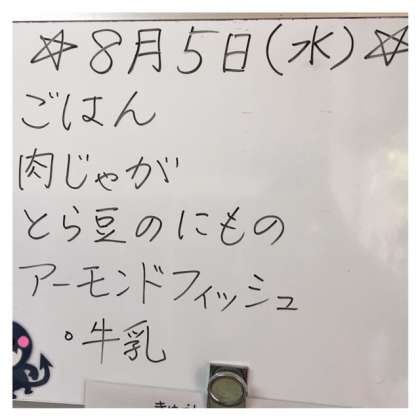 ☆8月5日(水)☆
ごはん
肉じゃが
とら豆のにもの
アーモンドフィッシュ
。牛乳